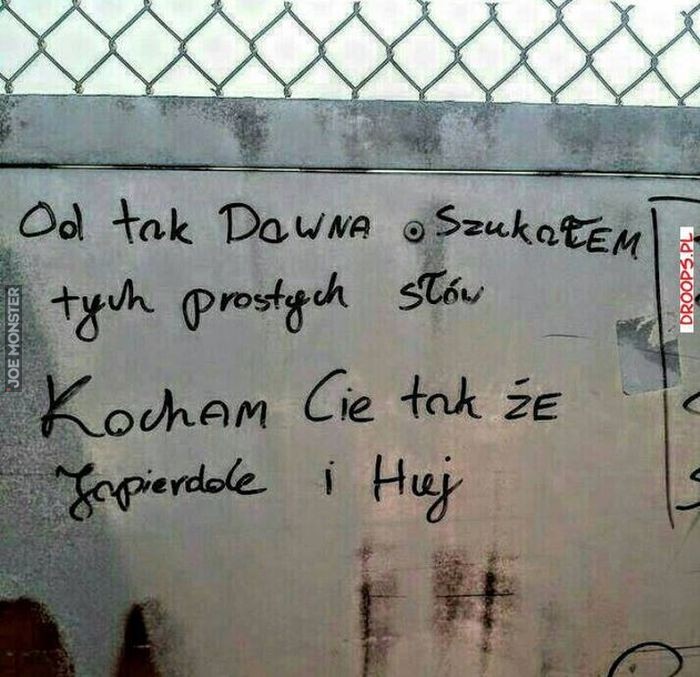 Od tak DaWNA SzukaŁEM
tych prostych słów
KochAM Cie tak żE
zapierdole i Huj
JOE MONSTER
DROOPS.PL